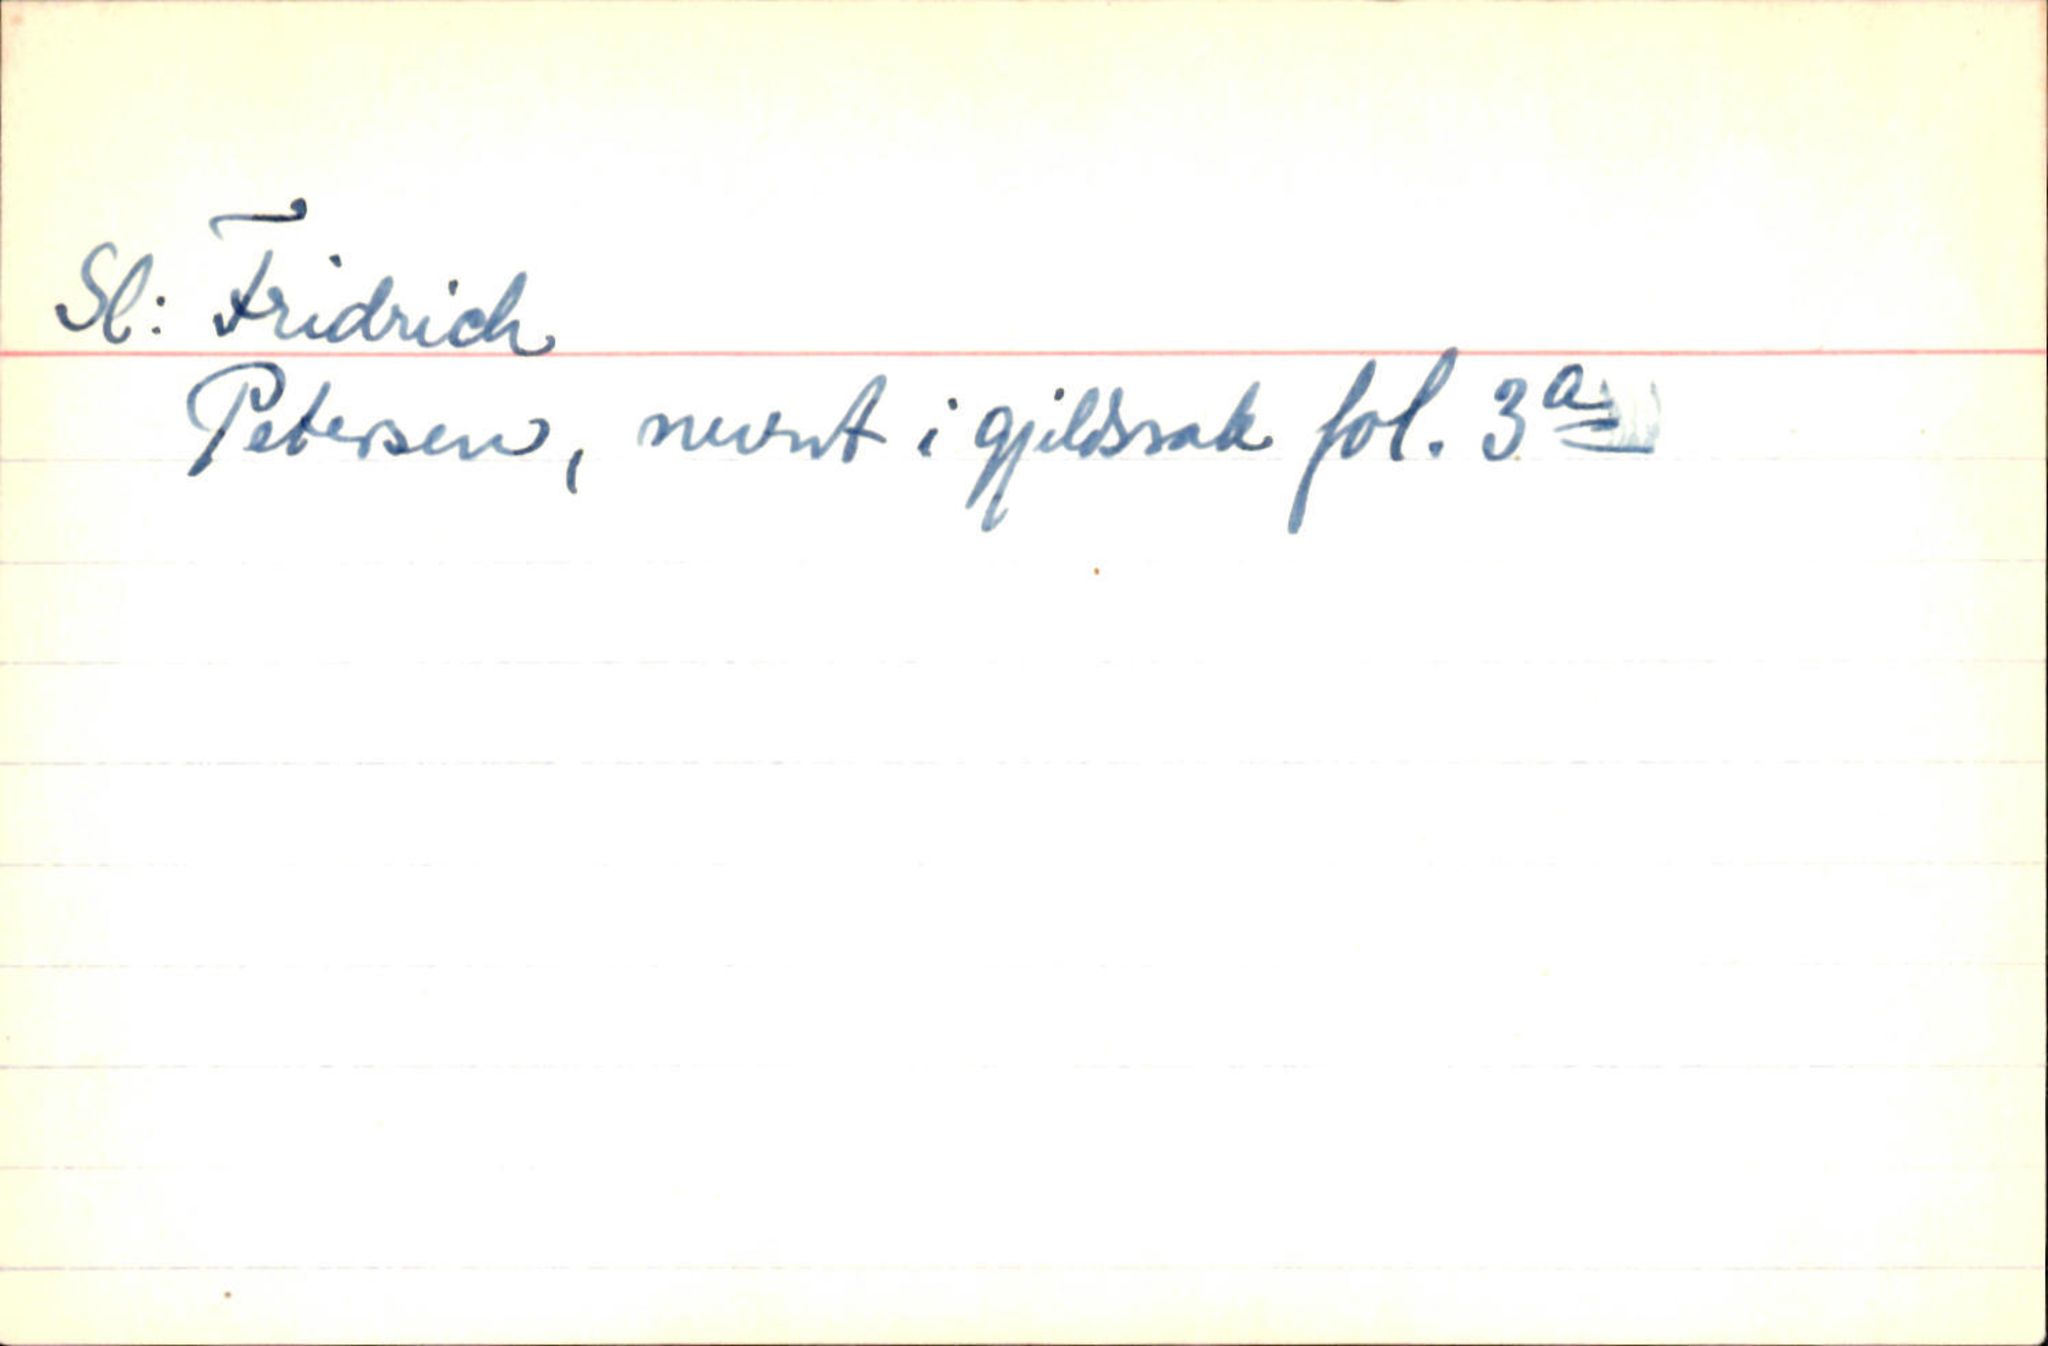 Sl: Fridrich
Petersen, nevnt i gjeldssak fol. 3a